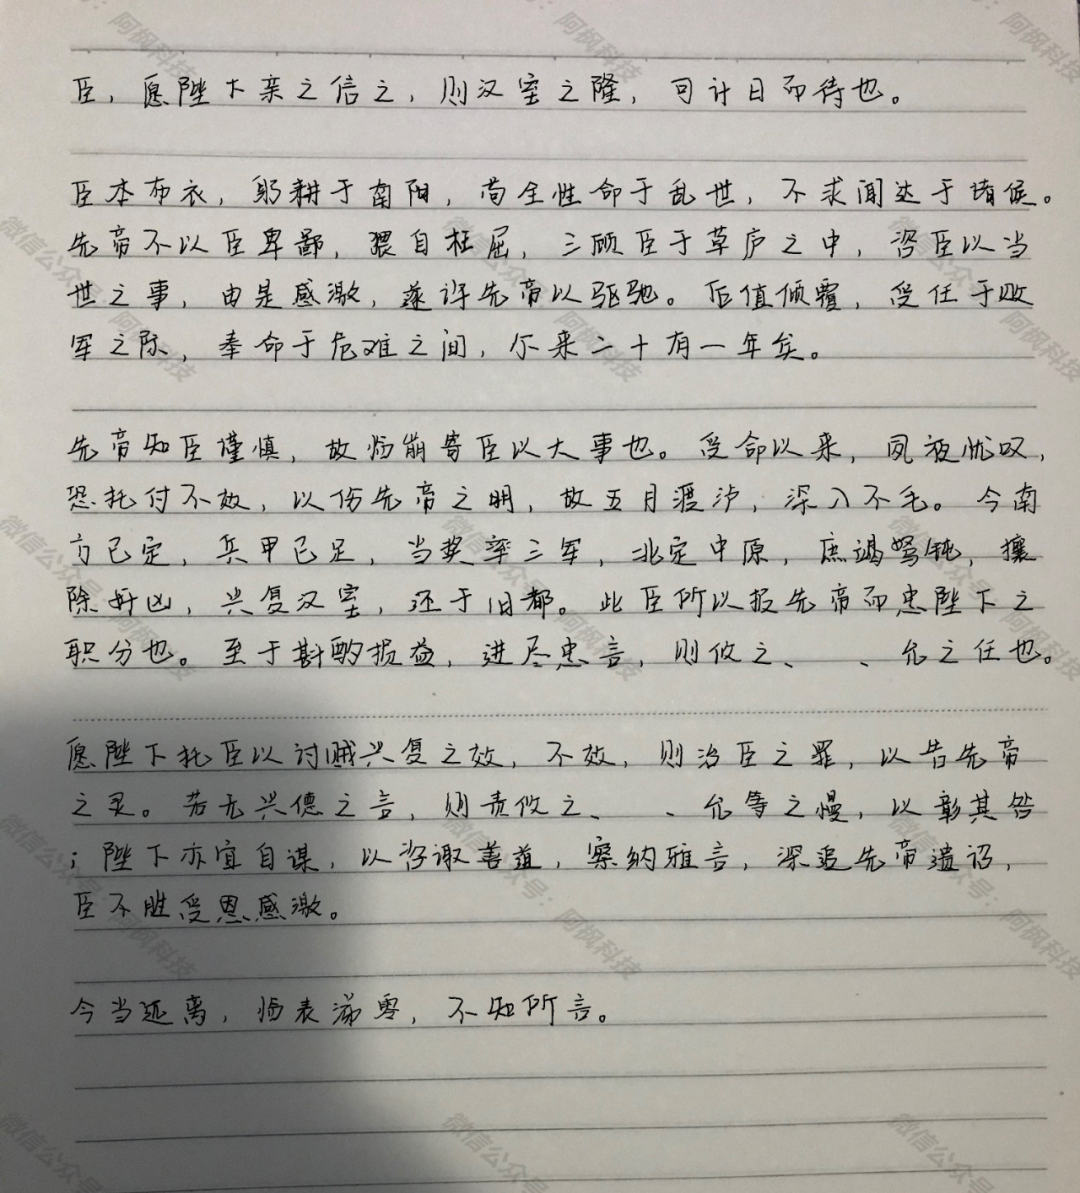 臣，愿陛下亲之信之，则汉室之隆，可计日而待也。
臣本布衣，躬耕于南阳，苟全性命于乱世，不求闻达于诸侯。
先帝不以臣卑鄙，猥自枉屈，三顾臣于草庐之中，咨臣以当
世之事，由是感激，遂许先帝以驱驰。后值倾覆，受任于败
军之际，奉命于危难之间，尔来二十有一年矣。
先帝知臣谨慎，故临崩寄臣以大事也。受命以来，夙夜忧叹，
恐托付不效，以伤先帝之明，故五月渡泸，深入不毛。今南
方已定，兵甲已足，当奖率三军，北定中原，庶竭驽钝，攘
除奸凶，兴复汉室，还于旧都。此臣所以报先帝而忠陛下之
职分也。至于斟酌损益，进尽忠言，则攸之、　、允之任也。
愿陛下托臣以讨贼兴复之效，不效，则治臣之罪，以告先帝
之灵。若无兴德之言，则责攸之、　、允等之慢，以彰其咎
；陛下亦宜自谋，以咨诹善道，察纳雅言，深追先帝遗诏，
臣不胜受恩感激。
今当远离，临表涕零，不知所言。
微信公众号：阿枫科技